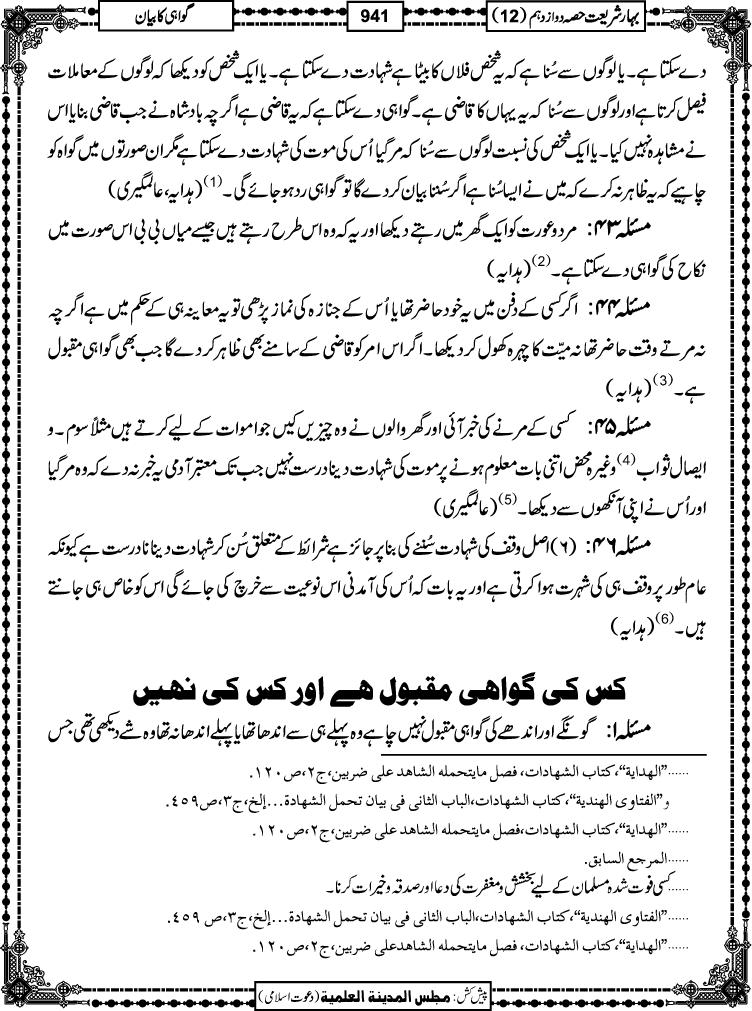 بہارِ شریعت حصہ دوازدہم (12)
941
گواہی کا بیان
دے سکتا ہے۔ یا لوگوں سے سُنا ہے کہ یہ شخص فلاں کا بیٹا ہے شہادت دے سکتا ہے۔ یا ایک شخص کو دیکھا کہ لوگوں کے معاملات
فیصل کرتا ہے اور لوگوں سے سُنا کہ یہ یہاں کا قاضی ہے۔ گواہی دے سکتا ہے کہ یہ قاضی ہے اگرچہ بادشاہ نے جب قاضی بنایا اس
نے مشاہدہ نہیں کیا۔ یا ایک شخص کی نسبت لوگوں سے سُنا کہ مر گیا اُس کی موت کی شہادت دے سکتا ہے مگر ان صورتوں میں گواہ کو
چاہیے کہ یہ ظاہر نہ کرے کہ میں نے ایسا سُنا ہے اگر سُننا بیان کردے گا تو گواہی رد ہو جائے گی۔(1) (ہدایہ، عالمگیری)
مسئلہ ۴۳: مرد و عورت کو ایک گھر میں رہتے دیکھا اور یہ کہ وہ اس طرح رہتے ہیں جیسے میاں بی بی اس صورت میں
نکاح کی گواہی دے سکتا ہے۔(2) (ہدایہ)
مسئلہ ۴۴: اگر کسی کے دفن میں یہ خود حاضر تھا یا اُس کے جنازہ کی نماز پڑھی تو یہ معاینہ ہی کے حکم میں ہے اگرچہ
نہ مرتے وقت حاضر تھا نہ میّت کا چہرہ کھول کر دیکھا۔ اگر اس امر کو قاضی کے سامنے بھی ظاہر کردے گا جب بھی گواہی مقبول
ہے۔(3) (ہدایہ)
مسئلہ ۴۵: کسی کے مرنے کی خبر آئی اور گھر والوں نے وہ چیزیں کیں جو اموات کے لیے کرتے ہیں مثلاً سوم۔ و
ایصال ثواب(4) وغیرہ محض اتنی بات معلوم ہونے پر موت کی شہادت دینا درست نہیں جب تک معتبر آدمی یہ خبر نہ دے کہ وہ مر گیا
اور اُس نے اپنی آنکھوں سے دیکھا۔(5) (عالمگیری)
مسئلہ ۴۶: (۶) اصل وقف کی شہادت سُننے کی بنا پر جائز ہے شرائط کے متعلق سُن کر شہادت دینا نادرست ہے کیونکہ
عام طور پر وقف ہی کی شہرت ہوا کرتی ہے اور یہ بات کہ اُس کی آمدنی اس نوعیت سے خرچ کی جائے گی اس کو خاص ہی جانتے
ہیں۔(6) (ہدایہ)
کس کی گواھی مقبول ھے اور کس کی نھیں
مسئلہ ۱: گونگے اور اندھے کی گواہی مقبول نہیں چاہے وہ پہلے ہی سے اندھا تھا یا پہلے اندھا نہ تھا وہ شے دیکھی تھی جس
......”الهداية“، كتاب الشهادات، فصل مايتحمله الشاهد على ضربين، ج٢، ص١٢٠.
و”الفتاوى الهندية“، كتاب الشهادات، الباب الثانی فی بيان تحمل الشهادة...إلخ، ج٣، ص٤٥٩.
......”الهداية“، كتاب الشهادات، فصل مايتحمله الشاهد على ضربين، ج٢، ص١٢٠.
......المرجع السابق.
......کسی فوت شدہ مسلمان کے لیے بخشش و مغفرت کی دعا اور صدقہ و خیرات کرنا۔
......”الفتاوى الهندية“، كتاب الشهادات، الباب الثانی فی بيان تحمل الشهادة...إلخ، ج٣، ص٤٥٩.
......”الهداية“، كتاب الشهادات، فصل مايتحمله الشاهدعلى ضربين، ج٢، ص١٢٠.
پیش کش: مجلس المدينة العلمية (دعوت اسلامی)